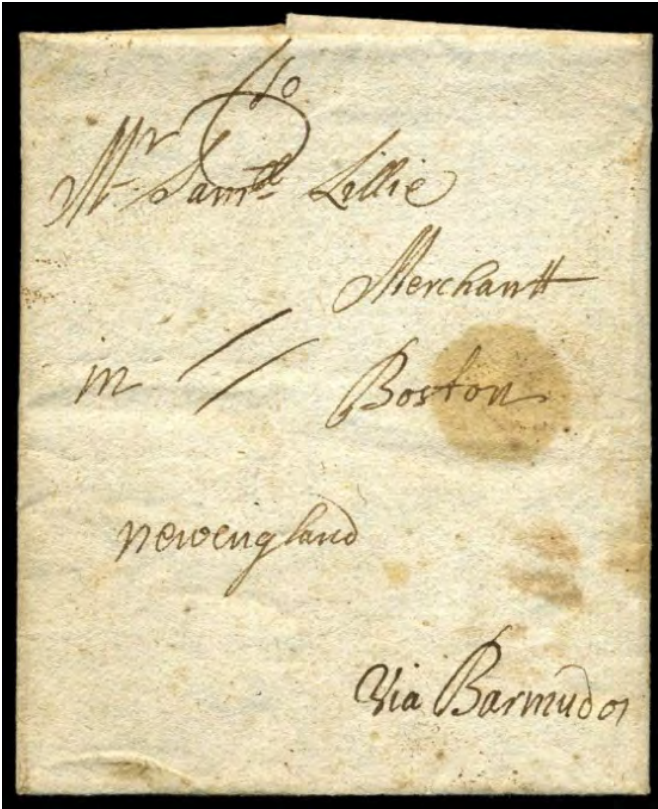 Mr Samll Lillie
Merchantt
in // Boston
newengland
Via Barmudos